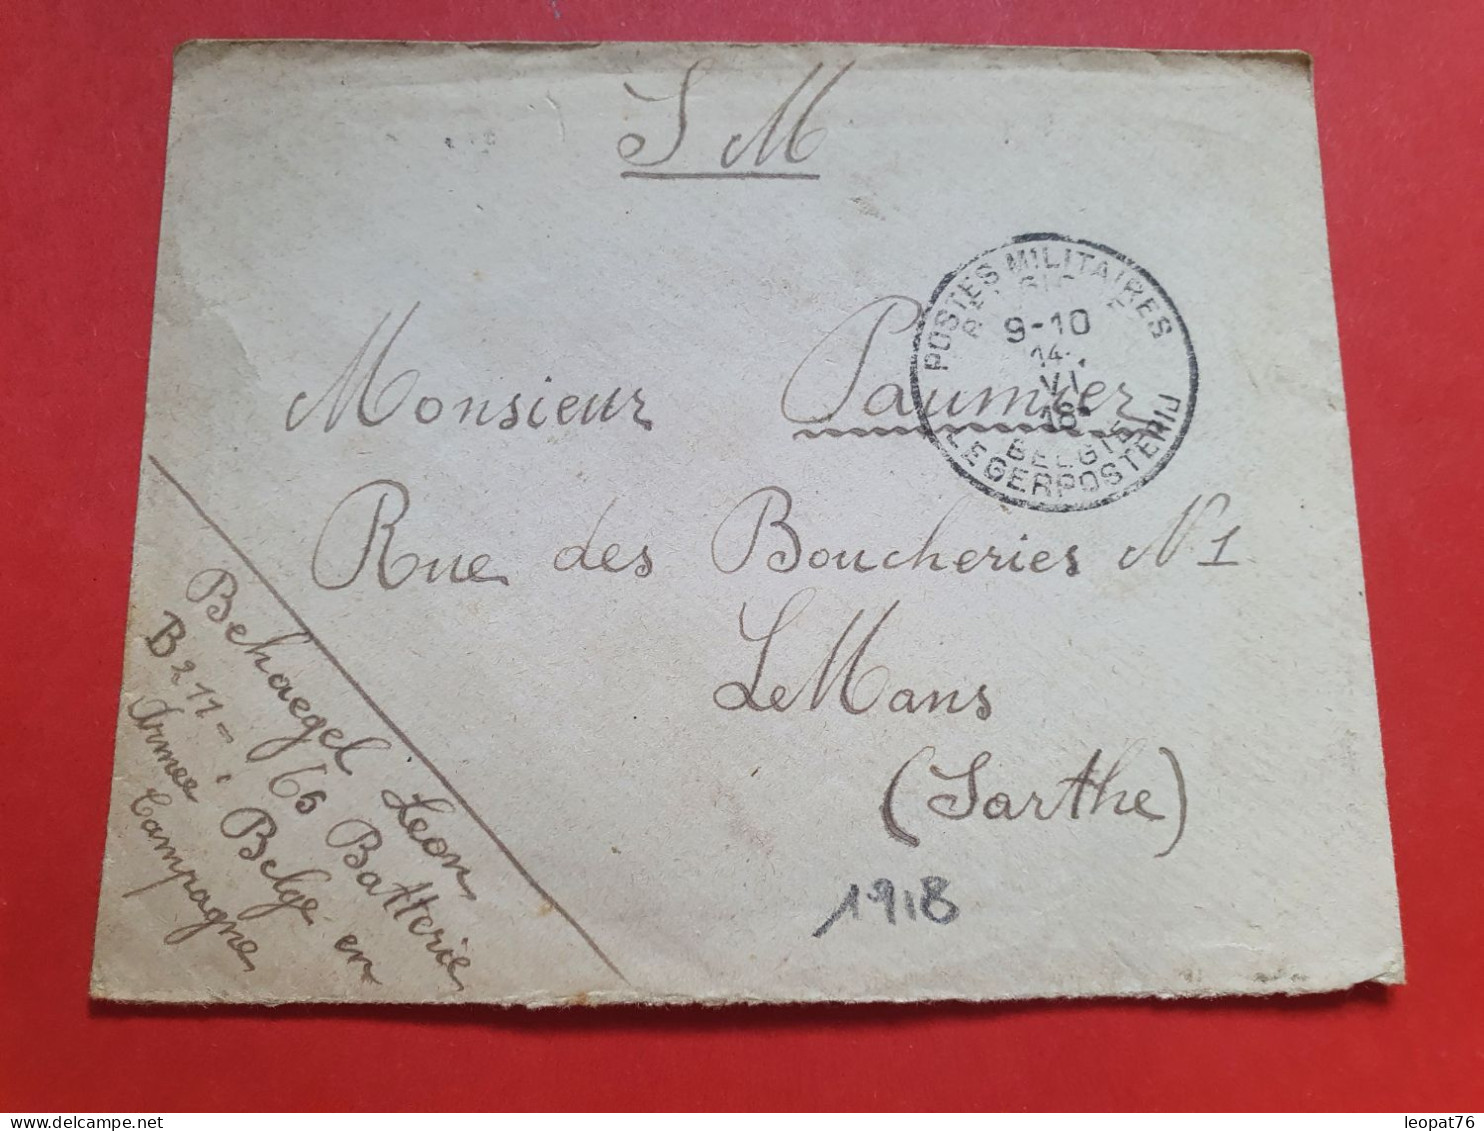 S M
POSTES MILITAIRES
BELGIQUE
9-10
14
VI
18
BELGIE
LEGERPOSTERIJ
Monsieur Paumier
Rue des Boucheries N 1
Le Mans
(Sarthe)
1918
Behaegel Leon
B 211 - 65 Batterie
Armee Belge en
Campagne
leopat76